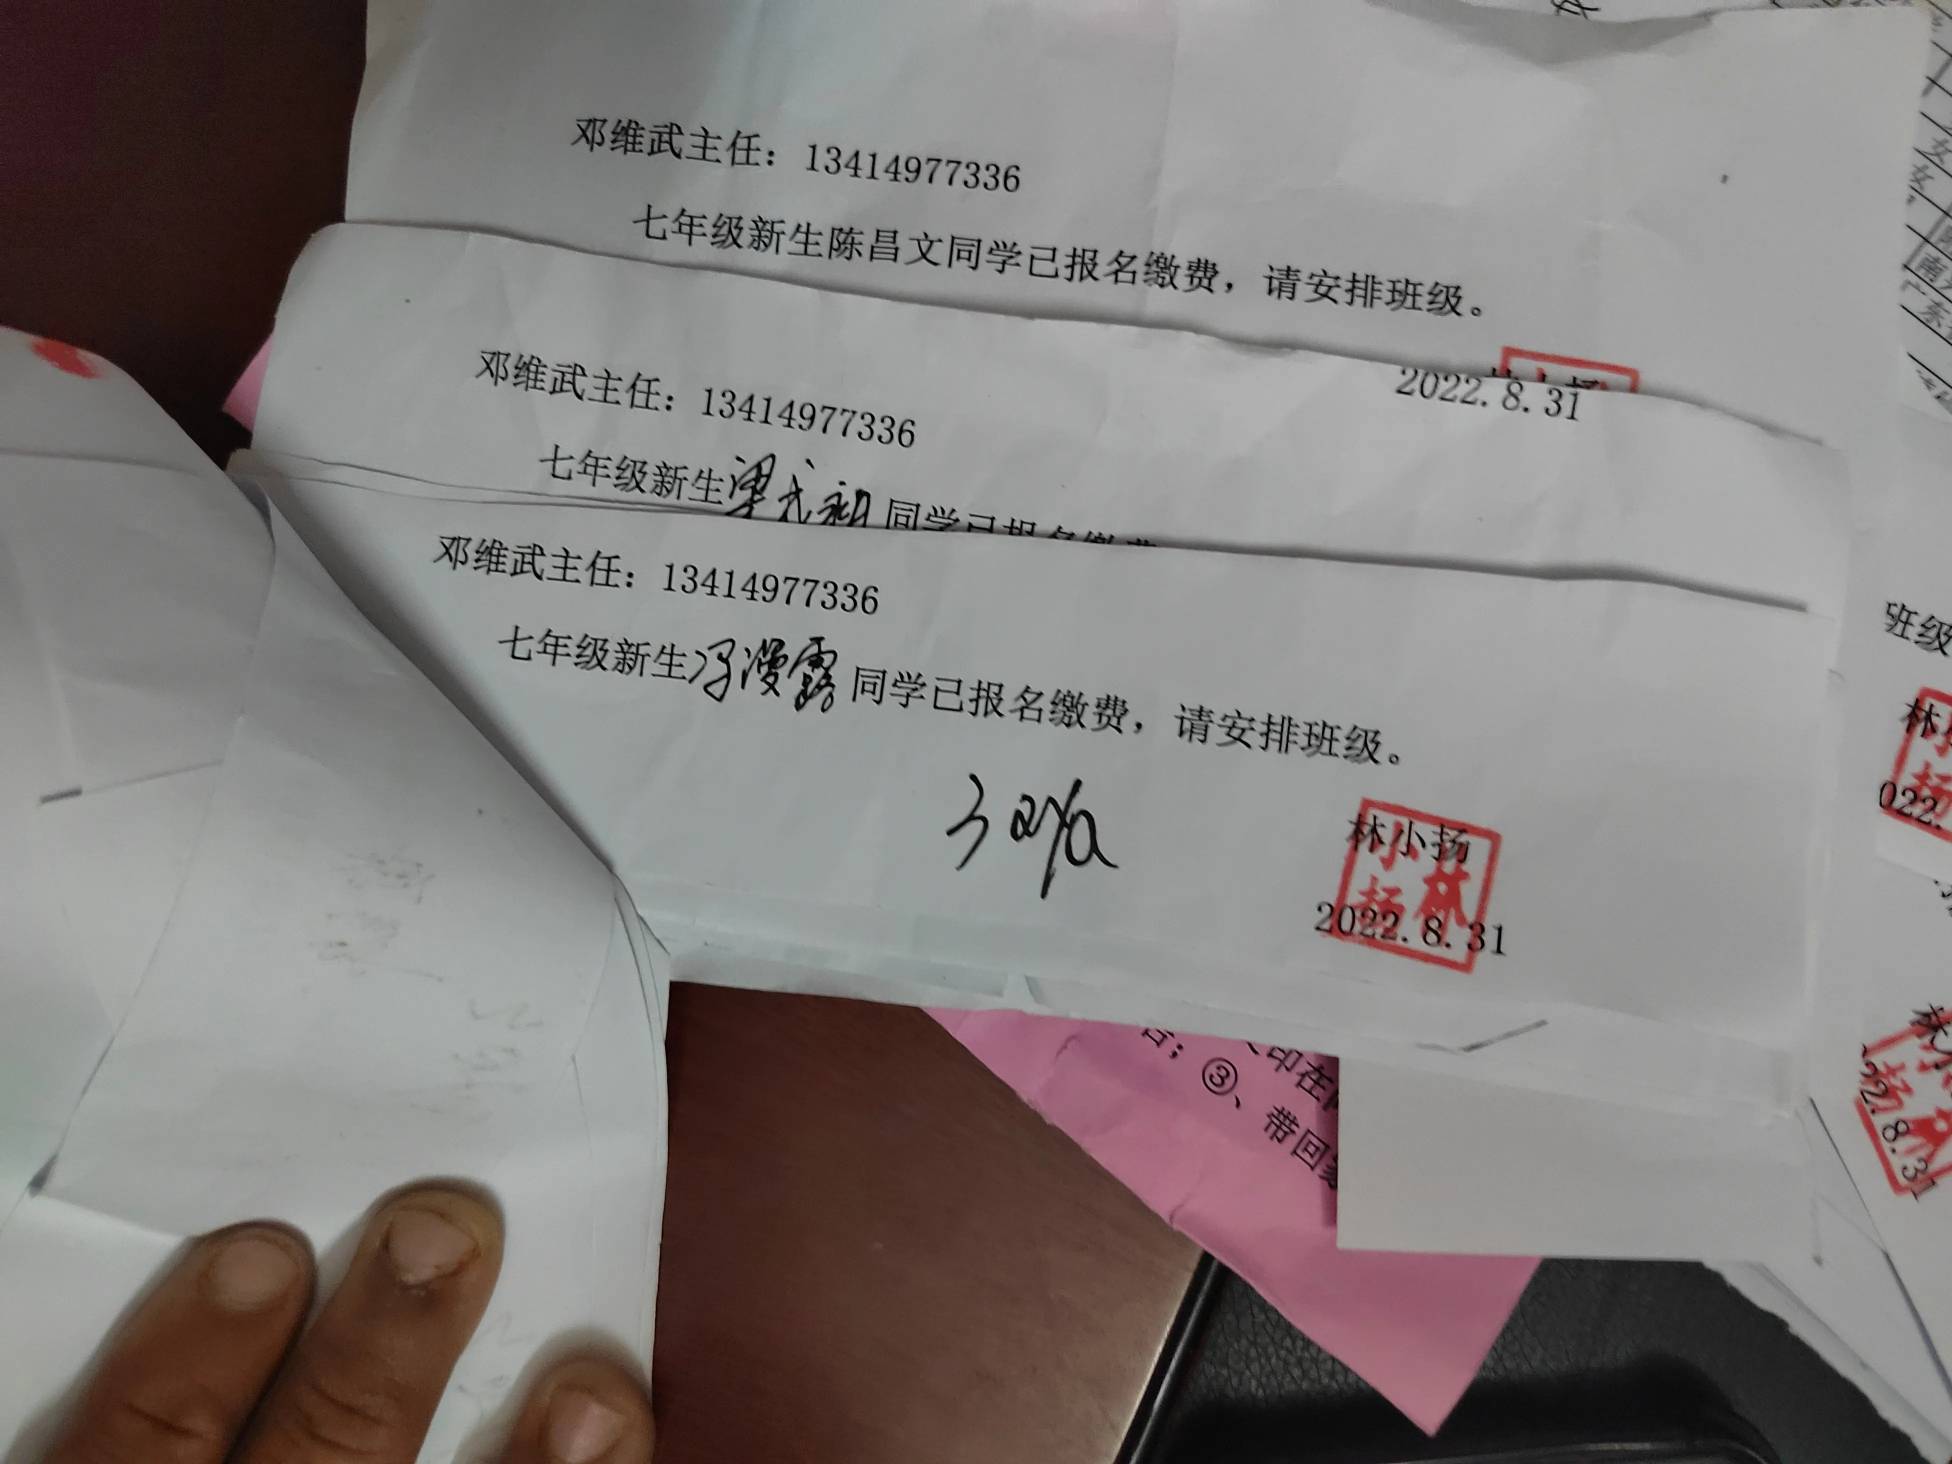 邓维武主任：13414977336
七年级新生陈昌文同学已报名缴费，请安排班级。
2022.8.31
邓维武主任：13414977336
七年级新生梁 同学已报名缴费
邓维武主任：13414977336
七年级新生冯漫露同学已报名缴费，请安排班级。
林小扬
2022.8.31
印在
③、带回
班级
林
022.
22.8.31
女
女
南
广东